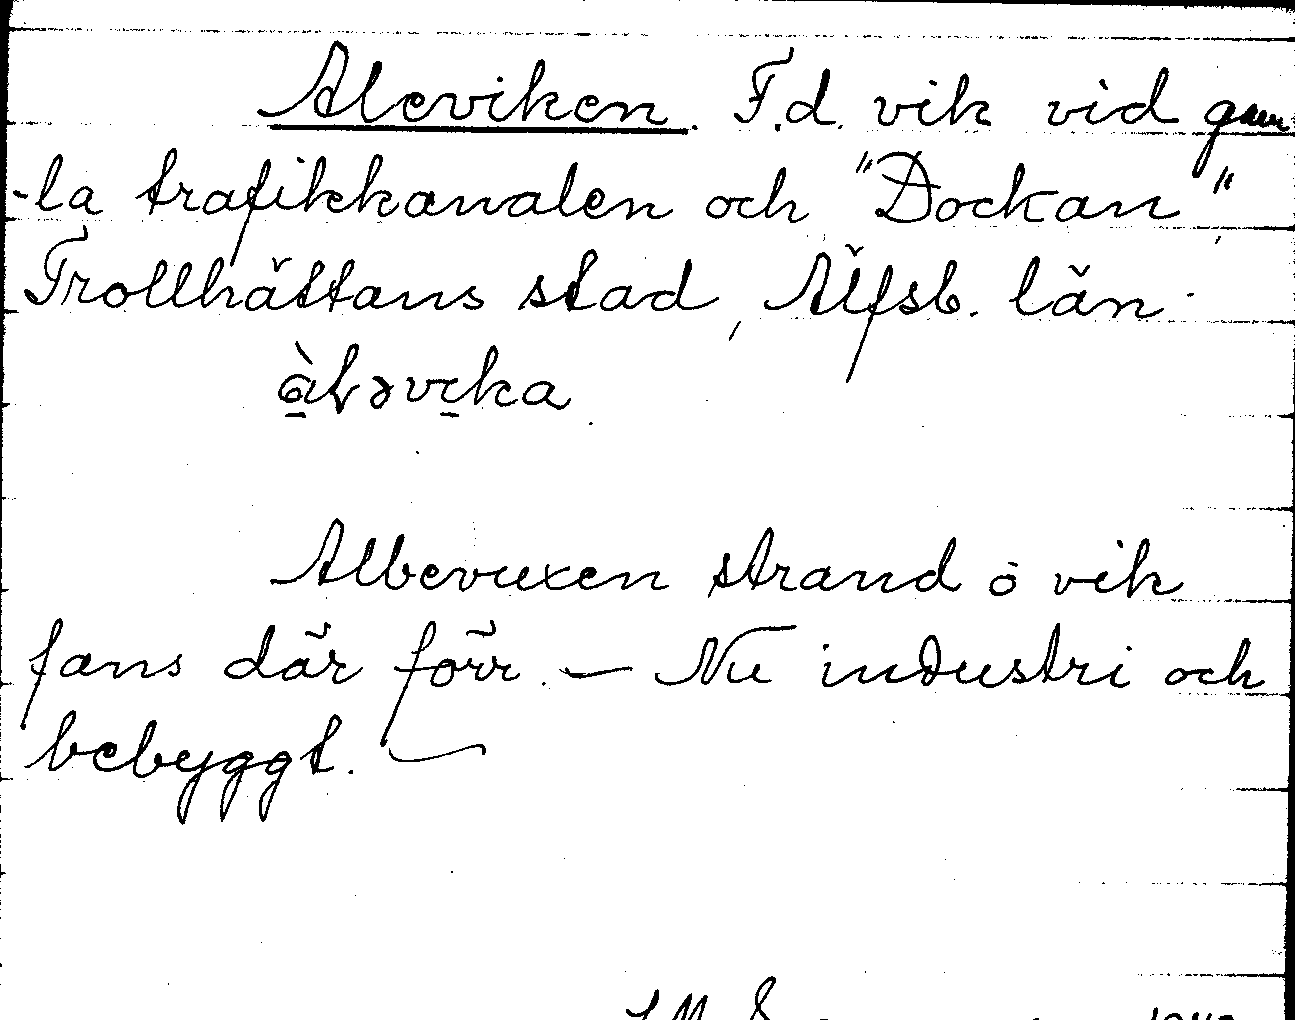 Aleviken. F.d. vik vid gam
-la trafikkanalen och "Dockan",
Trollhättans stad, Älfsb. län.
àləvika
Albevuxen strand o vik
fans där förr. — Nu industri och
bebyggt. —